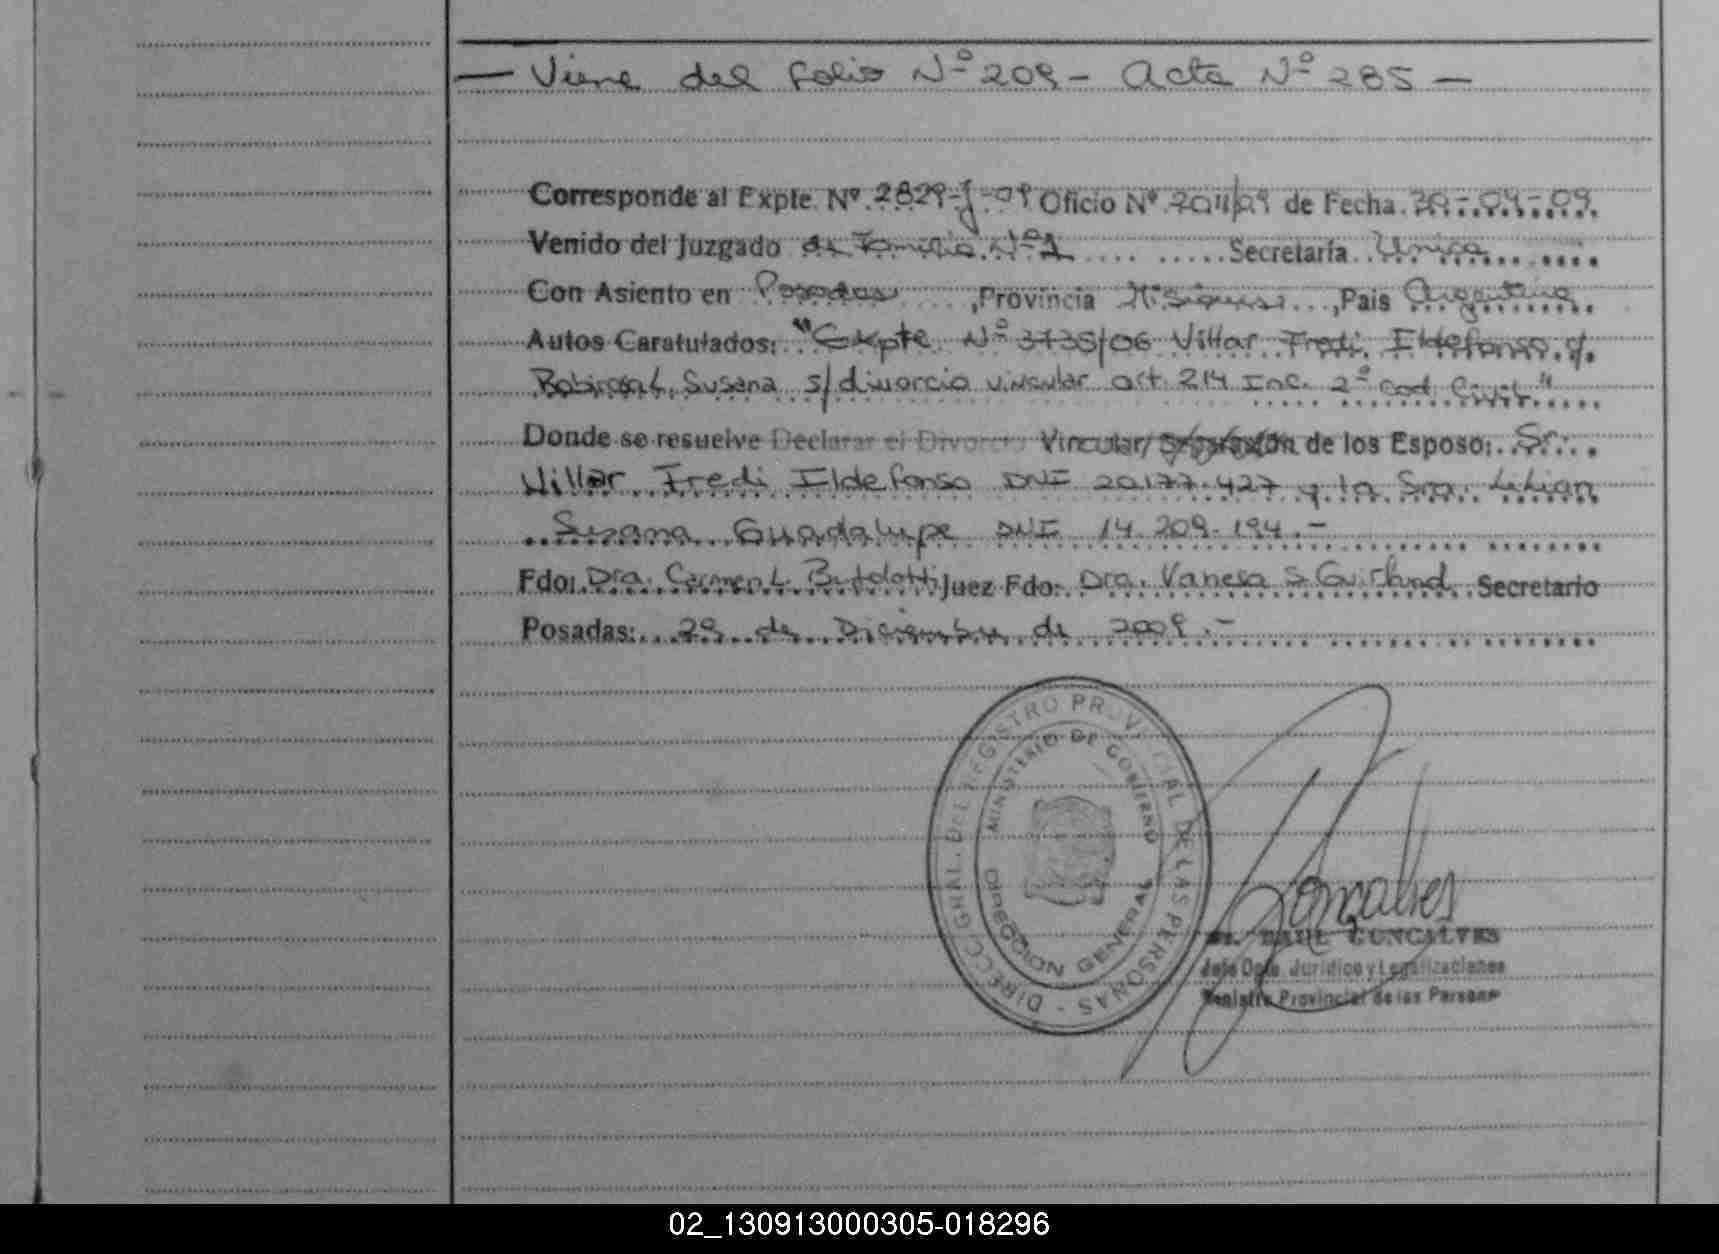 — Viene del folio Nº 209 - Acta Nº 285 —
Corresponde al Expte. Nº 2829-J-09 Oficio Nº 2011/09 de Fecha 30-04-09
Venido del Juzgado de Familia Nº 1 Secretaría Unica
Con Asiento en Posadas, Provincia Misiones, Pais Argentina
Autos Caratulados: "Expte Nº 3735/06 Villar Fredi Ildefonso c/
Susana s/divorcio vincular art. 214 Inc. 2º Cod Civil"
Donde se resuelve Declarar el Divorcio Vincular/ de los Esposo: Sr.
Villar Fredi Ildefonso DNI 20.177.427 y la Sra. Lilian
Susana Guadalupe DNI 14.209.194.-
Fdo: Dra. Carmen L. Juez Fdo: Dra. Vanesa S. Secretario
Posadas: 29 de Diciembre de 2009.-
DIRECC. GRAL. DEL REGISTRO PROVINCIAL DE LAS PERSONAS -
MINISTERIO DE GOBIERNO
DIRECCION GENERAL
Goncalves
RAUL GONCALVES
Jefe Dpto. Jurídico y Legalizaciones
Registro Provincial de las Persona
02_130913000305-018296